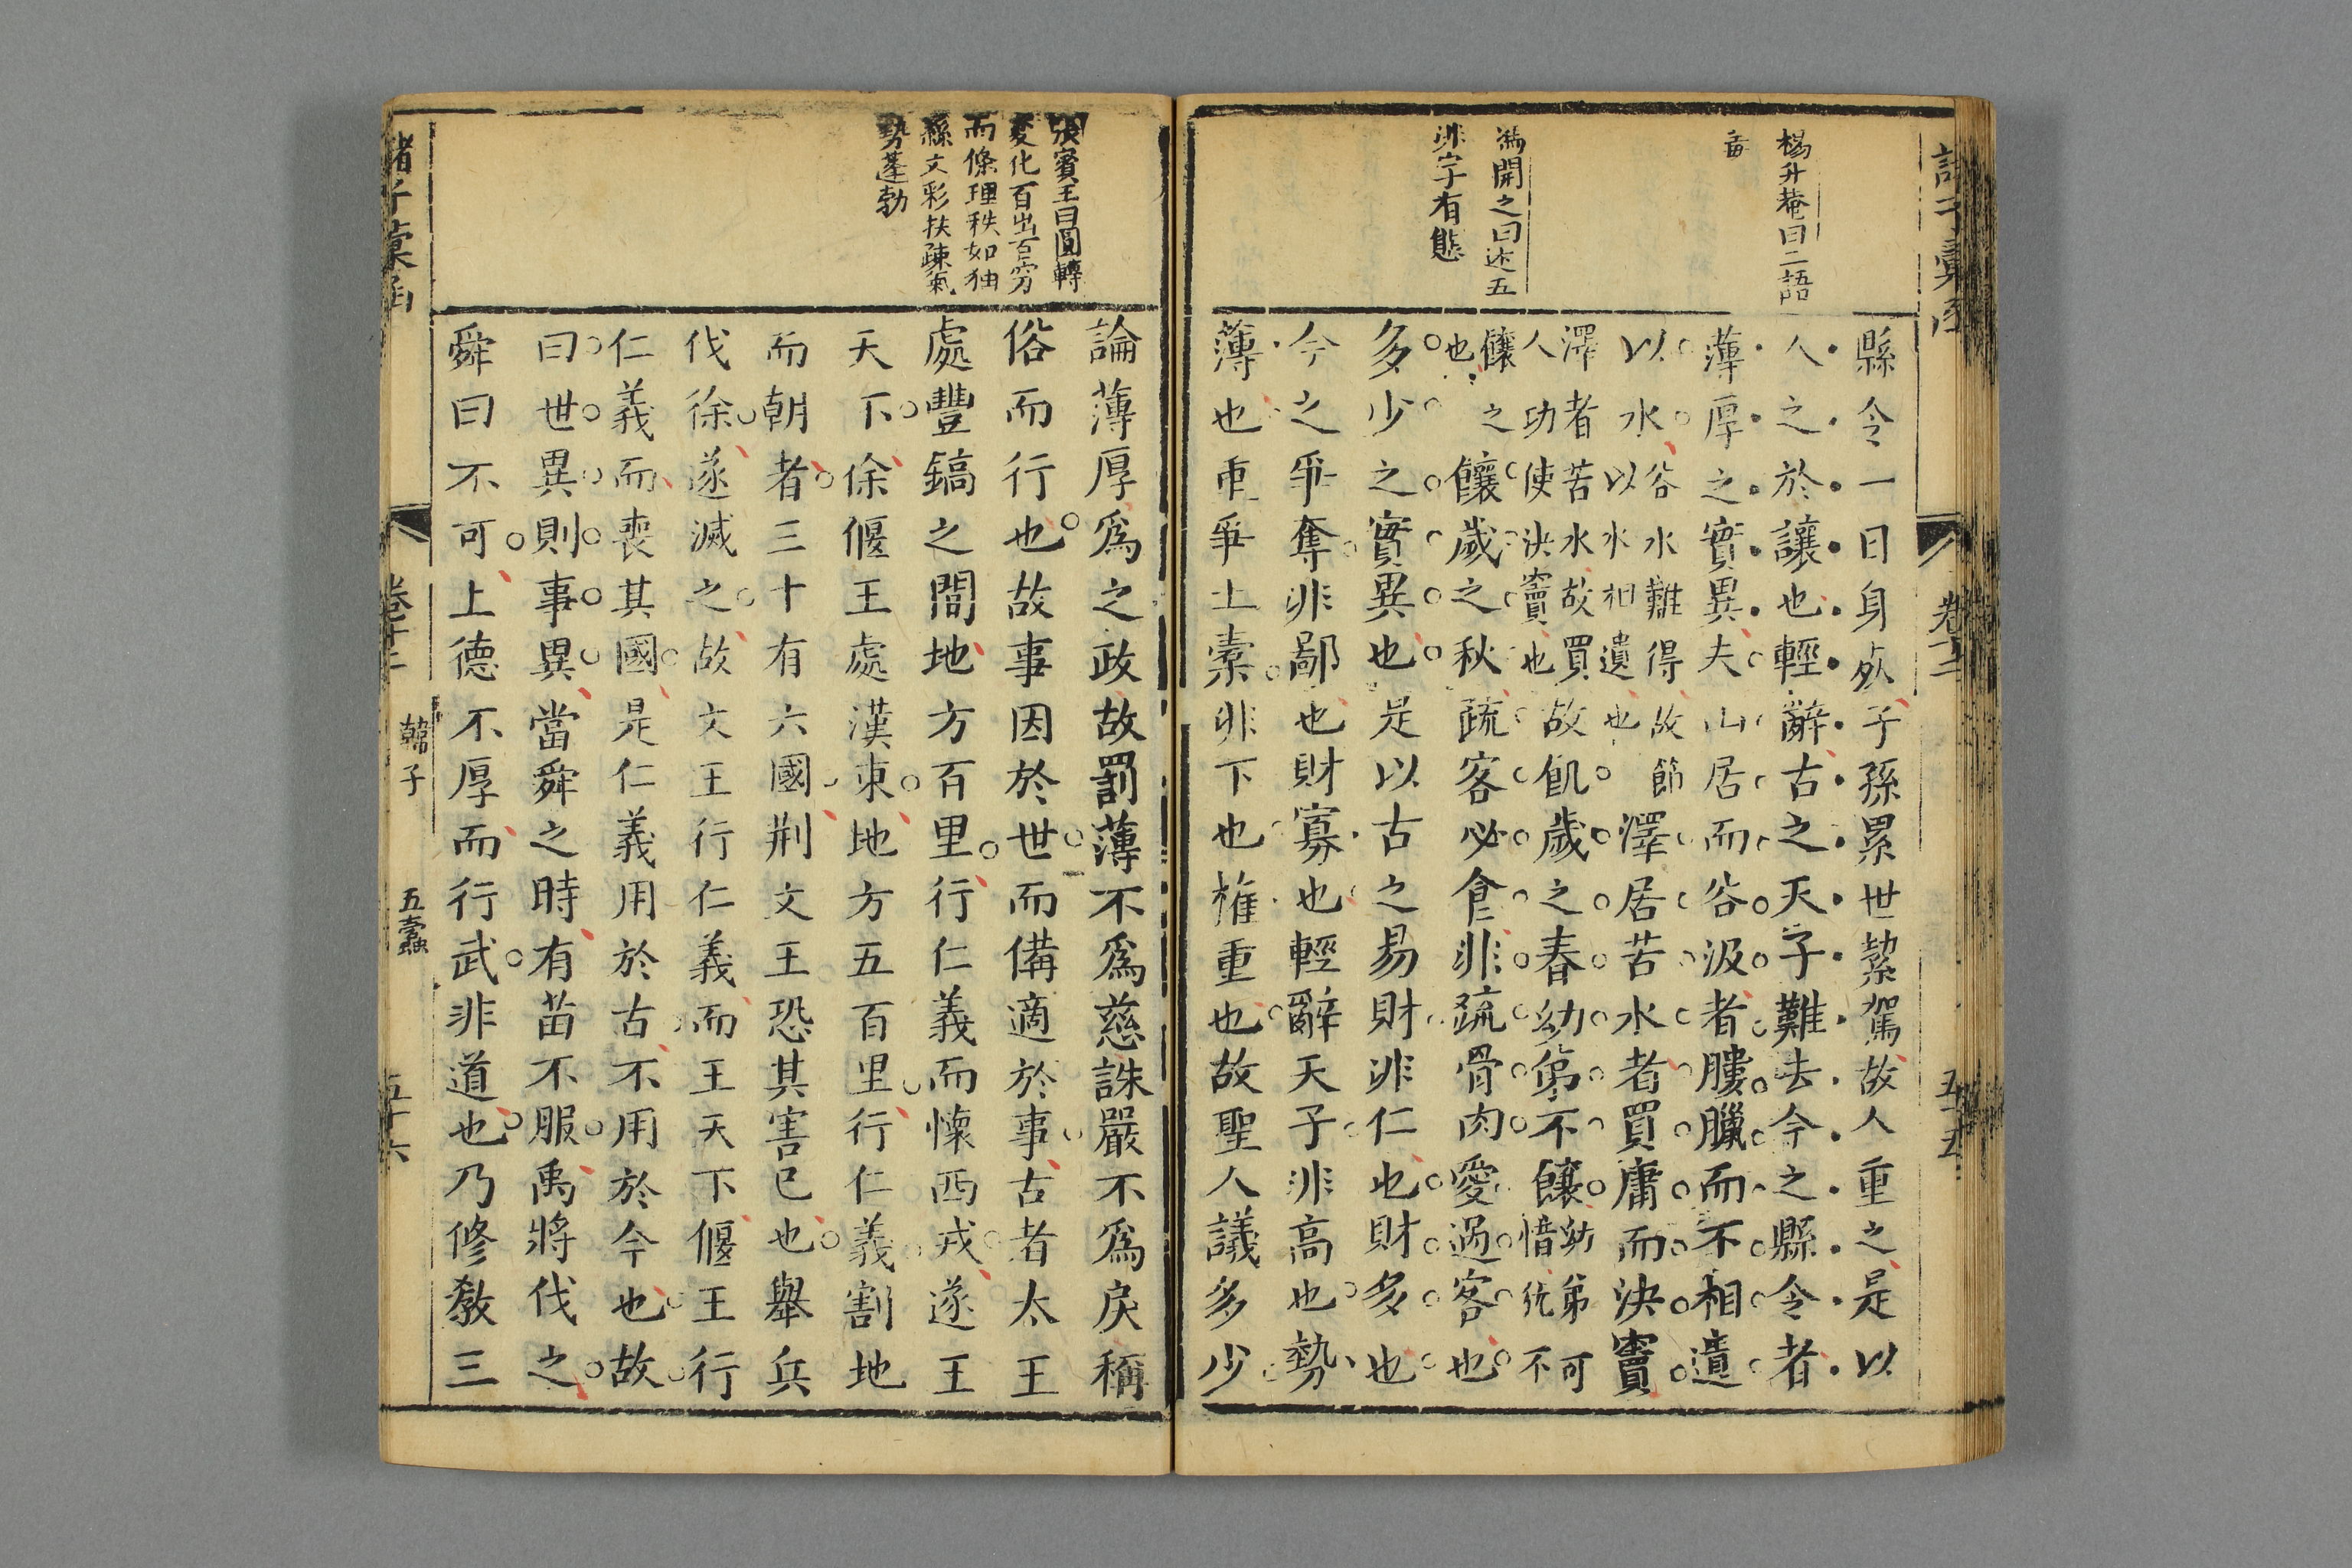 楊升菴曰二語
滿開之曰述五
非字有態
縣令一日身死子孫累世絜駕故人重之是以
人之於讓也輕辭古之天子難去今之縣令者
薄厚之實異夫山居而谷汲者膢臘而不相遺
以水谷水難得故節以水相遺也澤居苦水者買庸而決竇
澤者苦水故買人功使決竇也故飢歲之春幼弟不饟幼弟可惜猶不
饟之也饟歲之秋疏客必食非疏骨肉愛過客也
多少之實異也是以古之易財非仁也財多也
今之爭奪非鄙也財寡也輕辭天子非高也勢
薄也重爭土橐非下也權重也故聖人議多少
張賓王曰圓轉
變化百出百穷
而條理秩如抽
絲文彩扶疎氣
勢蓬勃
論薄厚爲之政故罰薄不爲慈誅嚴不爲戾稱
俗而行也故事因於世而備適於事古者太王
處豐鎬之間地方百里行仁義而懷西戎遂王
天下徐偃王處漢東地方五百里行仁義割地
而朝者三十有六國荆文王恐其害已也舉兵
伐徐遂滅之故文王行仁義而王天下偃王行
仁義而喪其國是仁義用於古不用於今也故
曰世異則事異當舜之時有苗不服禹將伐之
舜曰不可上德不厚而行武非道也乃修敎三
諸子彙函
卷十二
韓子
五蠹
五十六